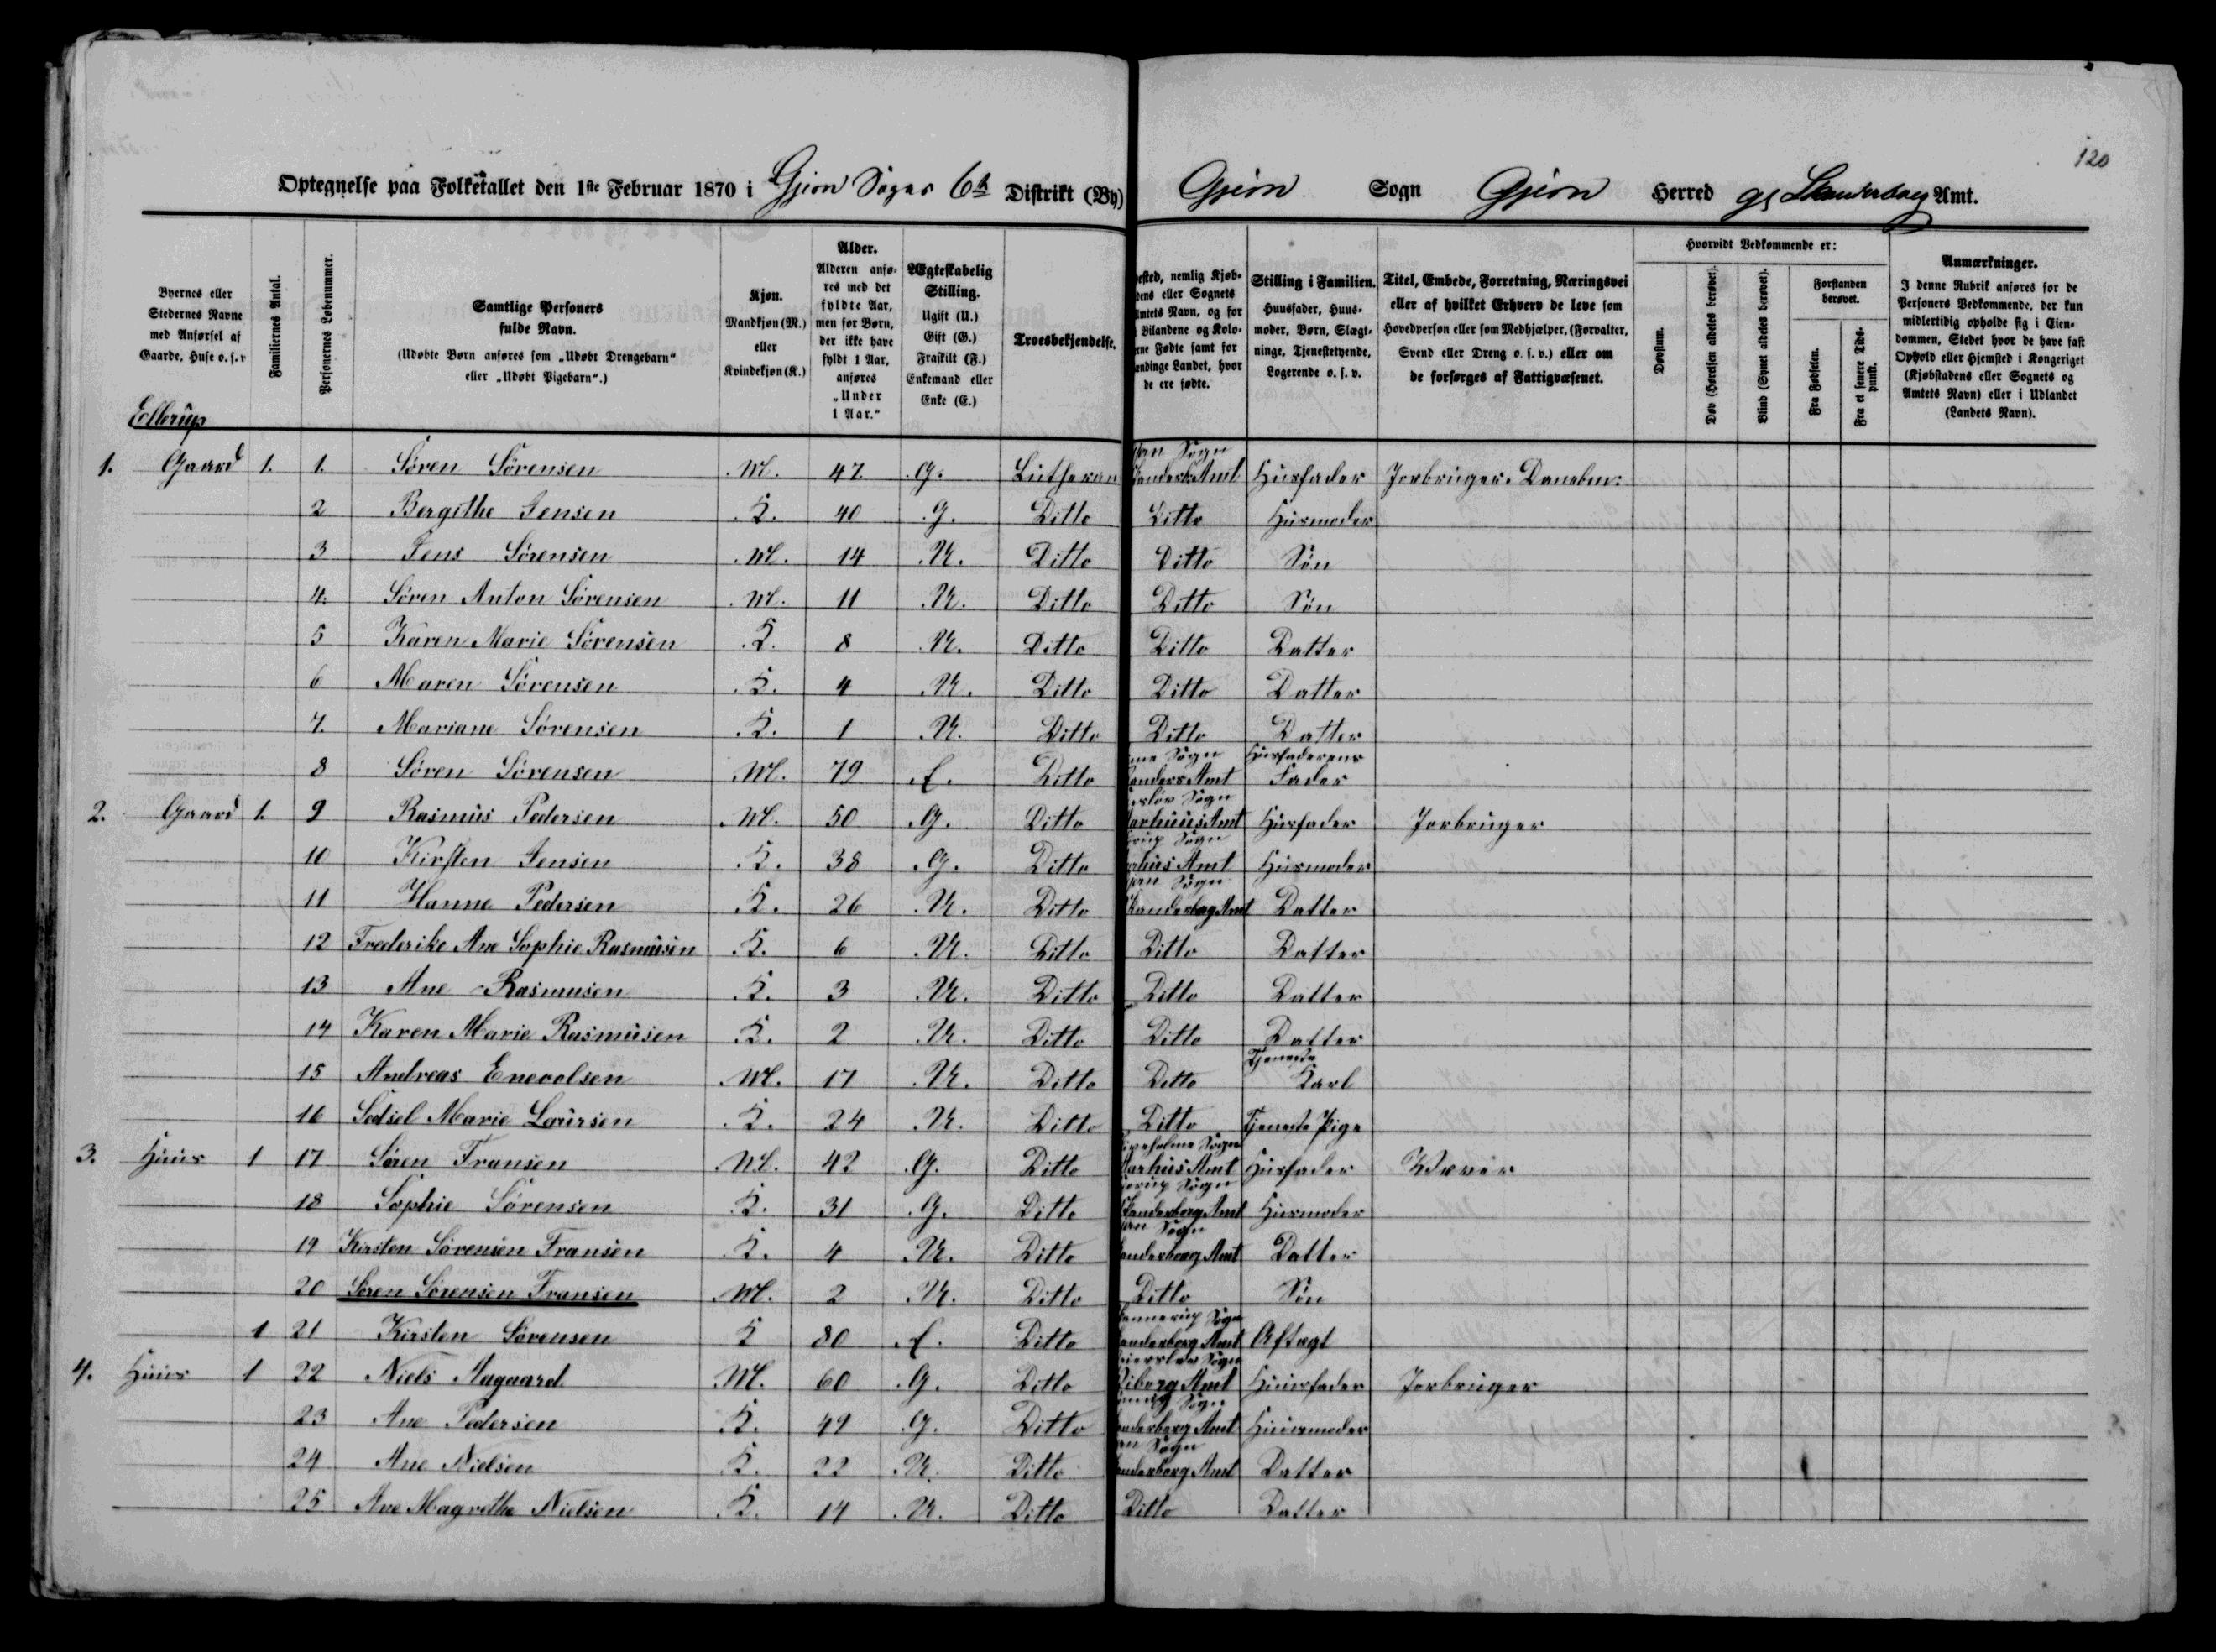 120
Optegnelse paa Folketallet den 1ste Februar 1870 i Gjern Sogns 6te Distrikt (By) Gjern Sogn Gjern Herred gl Skanderborg Amt.
Byernes eller Stedernes Navne med Anførsel af Gaarde, Huse o. s. v
Familiernes Antal.
Personernes Løbenummer.
Samtlige Personers fulde Navn.
(Udøbte Børn anføres som „Udøbt Drengebarn“ eller „Udøbt Pigebarn“.)
Kjøn.
Mandkjøn (M.) eller Kvindekjøn (K.)
Alder.
Alderen anføres med det fyldte Aar, men for Børn, der ikke have fyldt 1 Aar, anføres „Under 1 Aar.“
Ægteskabelig Stilling.
Ugift (U.) Gift (G.) Fraskilt (F.) Enkemand eller Enke (E.)
Troesbekjendelse.
ested, nemlig Kjøb-
dens eller Sognets
Amtets Navn, og for
Bilandene og Kolo-
rne Fødte samt for
andinge Landet, hvor
de ere fødte.
Stilling i Familien.
Huusfader, Huusmoder, Børn, Slægtninge, Tjenestetyende, Logerende o. s. v.
Titel, Embede, Forretning, Næringsvei eller af hvilket Erhverv de leve som Hovedperson eller som Medhjælper, (Forvalter, Svend eller Dreng o. s. v.) eller om de forsørges af Fattigvæsenet.
Hvorvidt Vedkommende er:
Døvstum.
Døv (Hørelsen aldeles berøvet).
Blind (Synet aldeles berøvet).
Forstanden berøvet.
Fra Fødselen.
Fra et senere Tidspunkt.
Anmærkninger.
I denne Rubrik anføres for de Personers Vedkommende, der kun midlertidig opholde sig i Eiendommen, Stedet hvor de have fast Ophold eller Hjemsted i Kongeriget (Kjøbstadens eller Sognets og Amtets Navn) eller i Udlandet (Landets Navn).
Ellerup
1. Gaard 1. 1. Søren Sørensen M. 47 G. Lutheran Sogn Amt Husfader Jorbruger. Danebm:
2 Bergithe Jensen K. 40 G. Ditto Ditto Husmoder
3 Jens Sørensen M. 14 U. Ditto Ditto Søn
4. Søren Anton Sørensen M. 11 U. Ditto Ditto Søn
5 Karen Marie Sørensen K. 8 U. Ditto Ditto Datter
6 Maren Sørensen K. 4 U. Ditto Ditto Datter
7. Mariane Sørensen K. 1 U. Ditto Ditto Datter
8 Søren Sørensen M. 79 E. Ditto Sogn anders Amt Husfaderens Fader
2. Gaard 1. 9 Rasmus Pedersen M. 50 G. Ditto Sogn Aarhuus Amt Husfader Jorbruger
10 Kirsten Jensen K. 38 G. Ditto rup Sogn rhus Amt Husmoder
11 Hanne Pedersen K. 26 U. Ditto Sogn Skanderbag Amt Datter
12 Frederike Ane Sophie Rasmusen K. 6 U. Ditto Ditto Datter
13 Ane Rasmusen K. 3 U. Ditto Ditto Datter
14 Karen Marie Rasmusen K. 2 U. Ditto Ditto Datter
15 Andreas Enevolsen M. 17 U. Ditto Ditto Tjeneste Karl
16 Sedsel Marie Laursen K. 24 U. Ditto Ditto Tjeneste Pige
3. Huus 1 17 Søren Fransen M. 42 G. Ditto Sogn Aarhus Amt Husfader Wæver
18 Sophie Sørensen K. 31 G. Ditto rup Sogn Skanderborg Amt Husmoder
19 Kirsten Sørensen Fransen K. 4 U. Ditto Sogn anderborg Amt Datter
20 Søren Sørensen Fransen M. 2 U. Ditto Ditto Søn
1 21 Kirsten Sørensen K 80 E. Ditto ennerup Sogn anderborg Amt Aftægt
4. Huus 1 22 Niels Aagaard M. 60 G. Ditto Sogn Viborg Amt Huusfader Jorbruger
23 Ane Pedersen K. 49 G. Ditto Sogn nderborg Amt Huusmoder
24 Ane Nielsen K. 22 U. Ditto Sogn anderborg Amt Datter
25 Ane Magrethe Nielsen K. 14 U. Ditto Ditto Datter